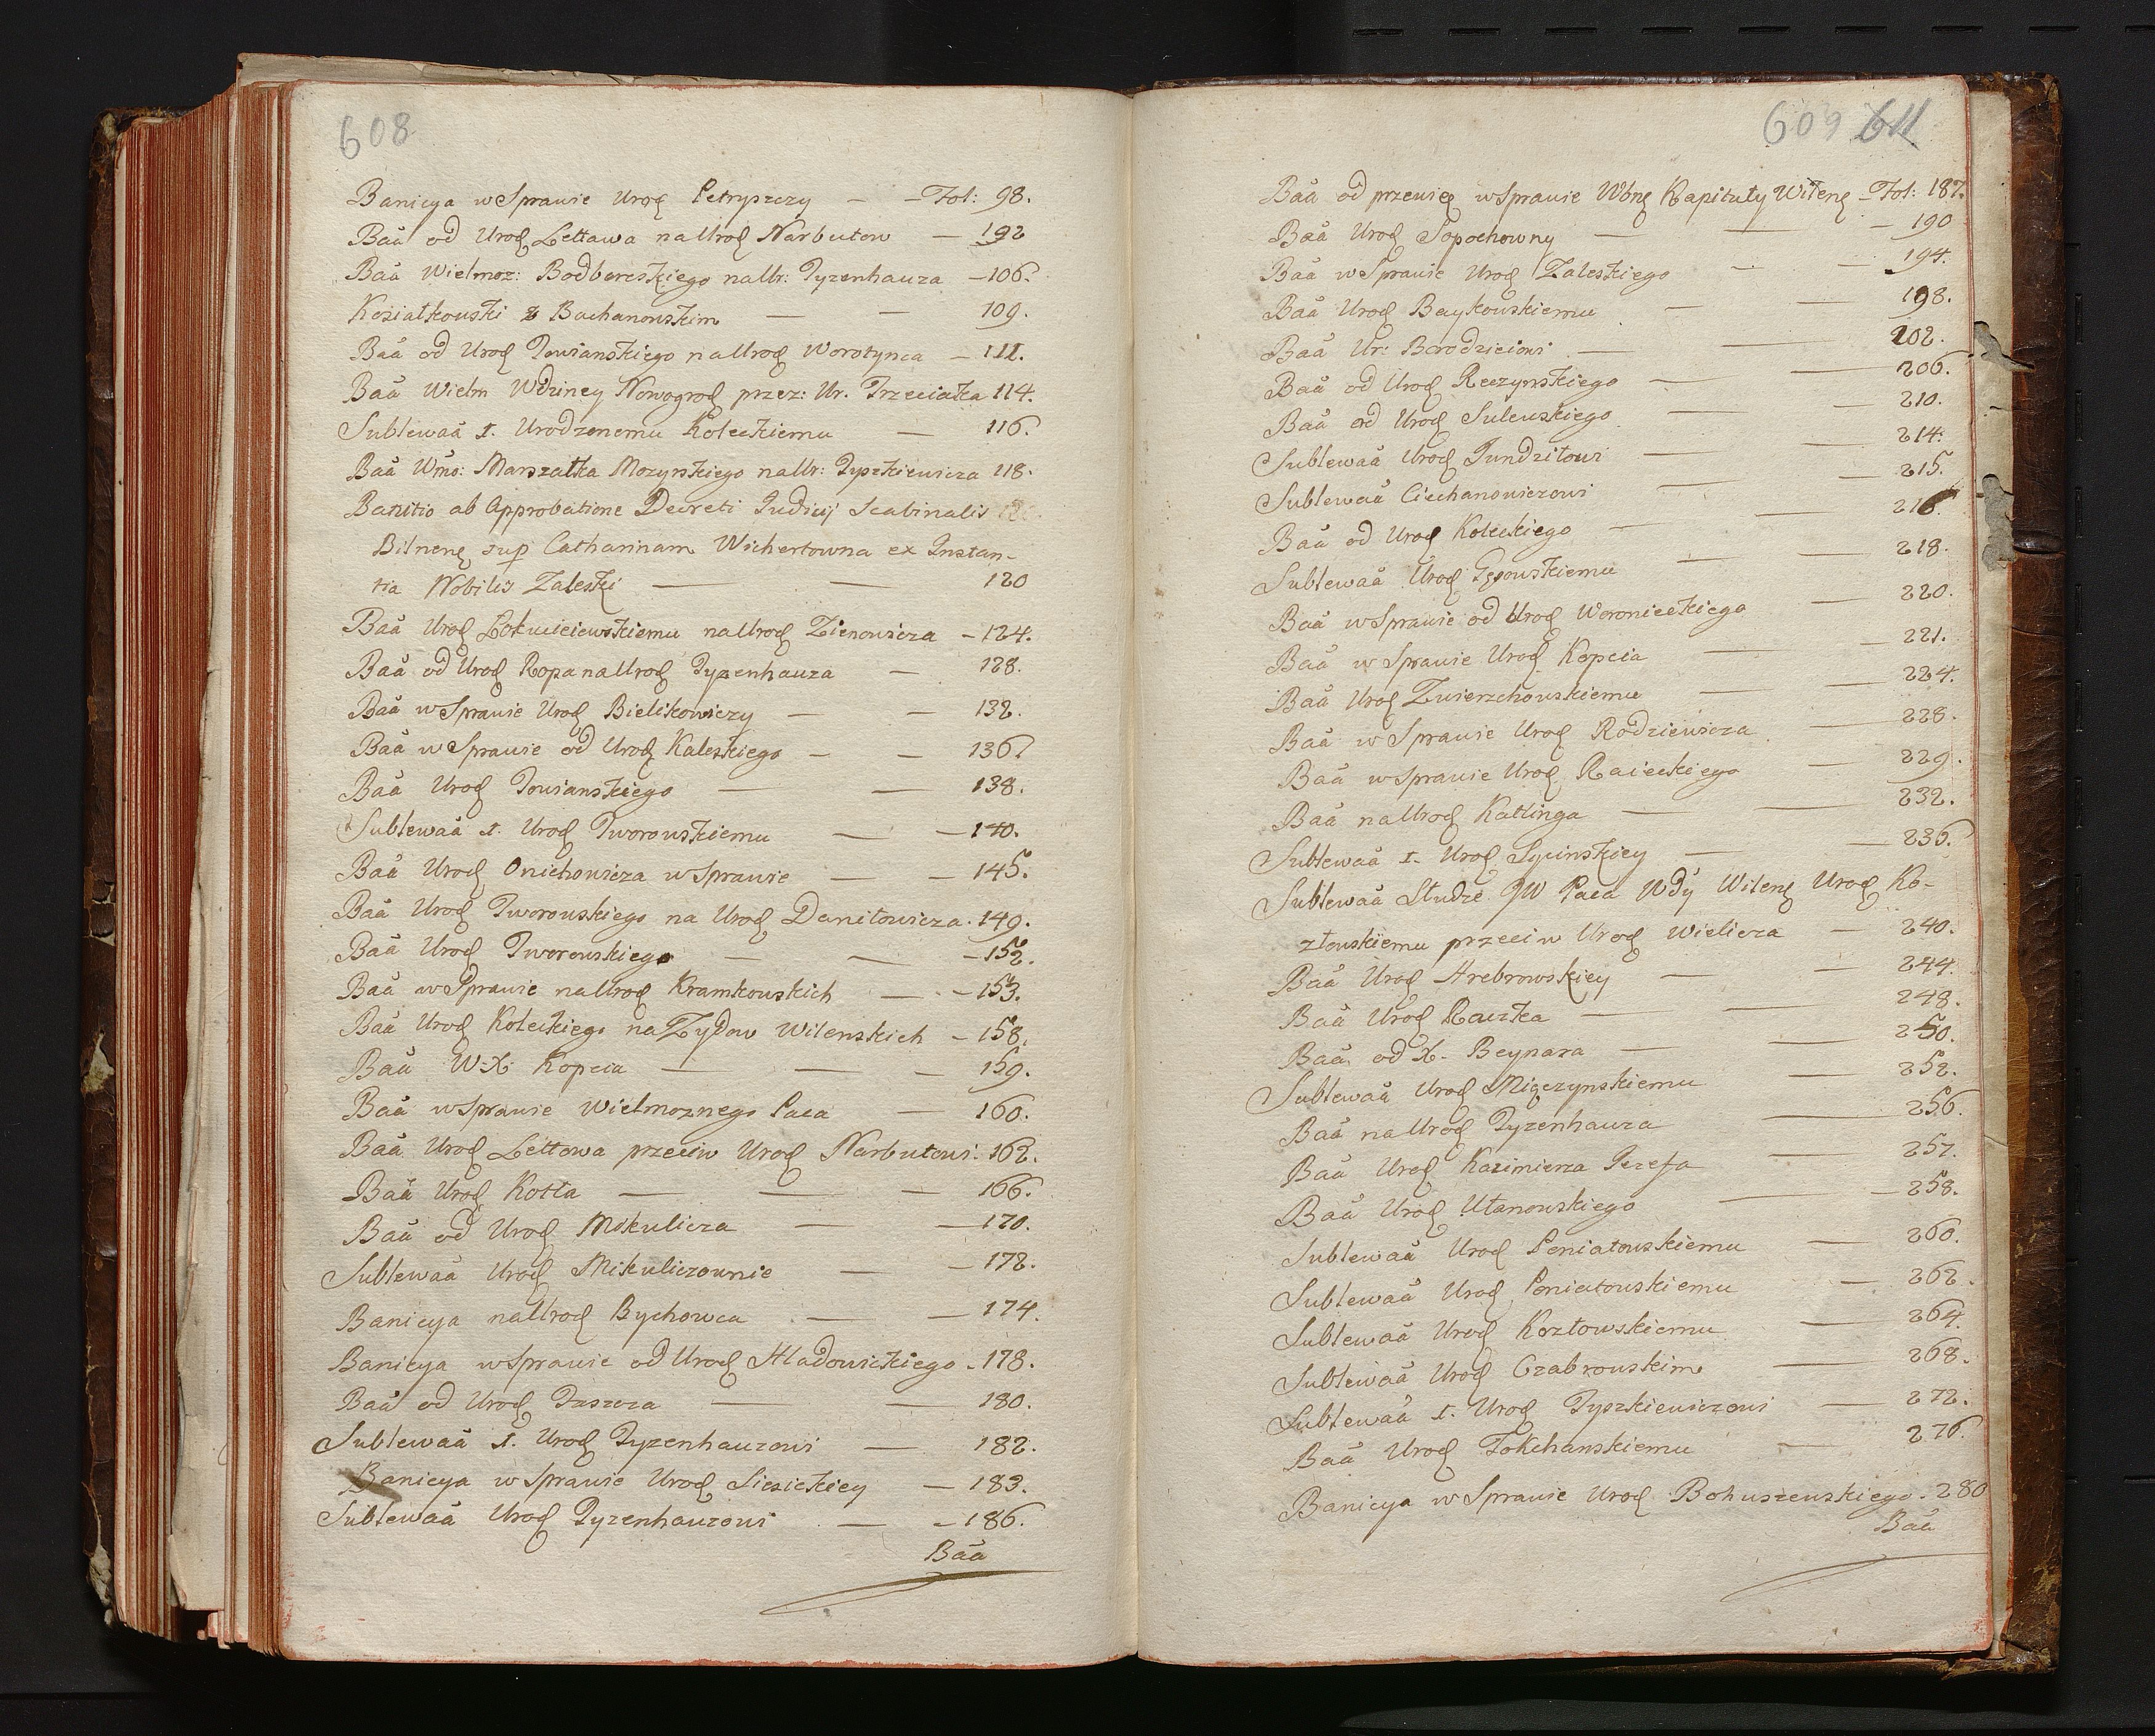 608
Banicya w Sprawie Urod Petryszczy — Fol: 98.
Baã od Urod Lettawa na Urod Narbutow — 192
Baã Wielmoz: Bodbereskiego na Ur: Tyzenhauza — 106.
Kosiatkowski z Bachanowskim — — 109.
Baã od Urod Towianskiego na Urod Worotynca — 111.
Baã Wielm Wdziney Nowogrod przez: Ur. Trzeciatka 114.
Sublewaã I. Urodzonemu Koleckiemu — 116.
Baã Wmo: Marszatka Mozyrskiego na Ur: Tyszkiewicza 118.
Banitio ab Approbatione Decreti Judicij Scabinalis
Bilnen sup Catharinam Wichertowna ex Instan-
tia Nobilis Zaleski — — 120
Baã Urod Lokuciewskiemu na Urod Zienowicza — 124.
Baã od Urod Ropa na Urod Tyzenhauza — 128.
Baã w Sprawie Urod Bielikowiczy — — 132.
Baã w Sprawie od Urod Kaleskiego — — 136.
Baã Urod Towianskiego — — 138.
Sublewaã I. Urod Tworowskiemu — — 140.
Baã Urod Onichowicza w Sprawie — — 145.
Baã Urod Tworowskiego na Urod Danitowicza. 149.
Baã Urod Tworowskiego — — — 152.
Baã w Sprawie na Urod Kramkowskich — — 153.
Baã Urod Koleckiego na Zydow Wilenskich — 158.
Baã W. X. Kopcia — — — 159.
Baã w Sprawie Wielmoznego Paca — 160.
Baã Urod Lettowa przeciw Urod Narbutowi. 162.
Baã Urod Kotta — — — 166.
Baã od Urod Mikulicza — — 170.
Sublewaã Urod Mikuliczownie — — 172.
Banicya na Urod Bychowca — — 174.
Banicya w Sprawie od Urod Hladowickiego — 178.
Baã od Urod Tuszcza — — 180.
Sublewaã I. Urod Tyzenhauzowi — 182.
Banicya w Sprawie Urod Siesickiey — 183.
Sublewaã Urod Tyzenhauzowi — — 186.
Baã
609 611
Baã od przewie w Sprawie Wbne Kapituly Wilene — Fol: 187.
Baã Urod Sopochowny — — — 190
Baã w Sprawie Urod Zaleskiego — — 194.
Baã Urod Baykowskiemu — — 198.
Baã Ur: Borodziciowi — — 202.
Baã od Urod Reczynskiego — — 206.
Baã od Urod Sulewskiego — — 210.
Sublewaã Urod Pundzitowi — — 214.
Sublewaã Ciechanowiczowi — — 215.
Baã od Urod Koleckiego — — 216.
Sublewaã Urod Gęsowskiemu — — 218.
Baã w Sprawie od Urod Woronieckiego — 220.
Baã w Sprawie Urod Kopcia — — 221.
Baã Urod Zwierzchowskiemu — — 224.
Baã w Sprawie Urod Rodziewicza — 228.
Baã w Sprawie Urod Raieckiego — 229.
Baã na Urod Katlinga — — 232.
Sublewaã I. Urod Sycinskiey — — 236.
Sublewaã Studze JW Paca Wdy Wilene Urod Ko-
złowskiemu przeciw Urod Wielicza — 240.
Baã Urod Hrebrowskiey — — 244.
Baã Urod Raczka — — 248.
Baã od X. Beynara — — 250.
Sublewaã Urod Mięczynskiemu — 252.
Baã na Urod Tyzenhauza — 256.
Baã Urod Kazimierza Jezefa — 257.
Baã Urod Utanowskiego — — 258.
Sublewaã Urod Poniatowskiemu — 260.
Sublewaã Urod Poniatowskiemu — 262.
Sublewaã Urod Kozłowskiemu — 264.
Sublewaã Urod Czabrowskim — 268.
Sublewaã I. Urod Tyszkiewiczowi — 272.
Baã Urod Tokchanskiemu — 276.
Banicya w Sprawie Urod Bohuszewskiego. 280
Baã